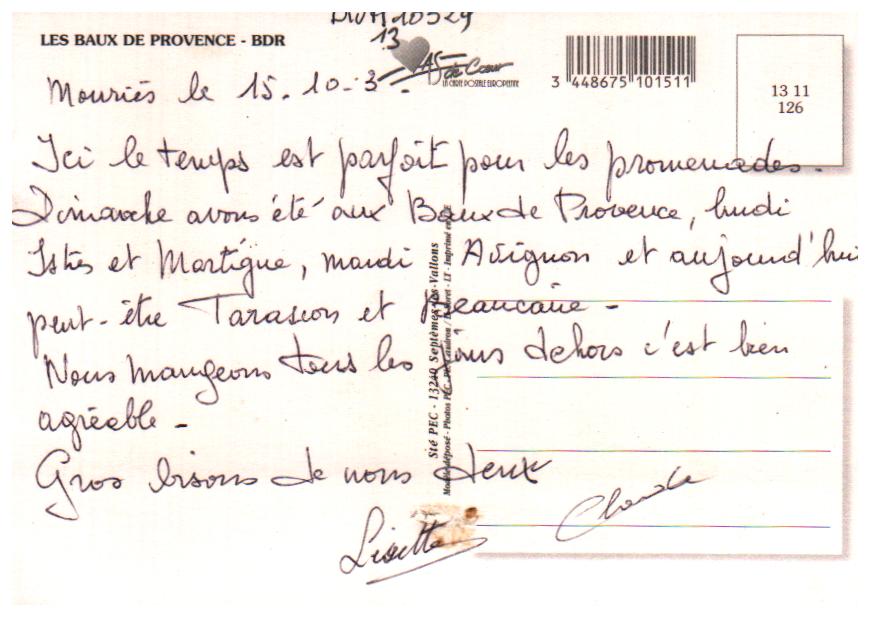 DVA10529
13
LES BAUX DE PROVENCE - BDR
AS de Cœur
LA CARTE POSTALE EUROPEENNE
3 448675 101511
13 11
126
Mouriès le 15.10.3.
Ici le temps est parfait pour les promenades.
Dimanche avons été aux Baux de Provence, lundi
Istres et Martigue, mardi Avignon et aujourd'hui
peut-être Tarascon et Beaucaire -
Nous mangeons tous les jours dehors c'est bien
agréable -
Gros bisous de nous deux
Lisette
Claude
Sté PEC - 13240 Septèmes-les-Vallons
Modèle déposé - Photos PEC - LT - Imprimé en CEE